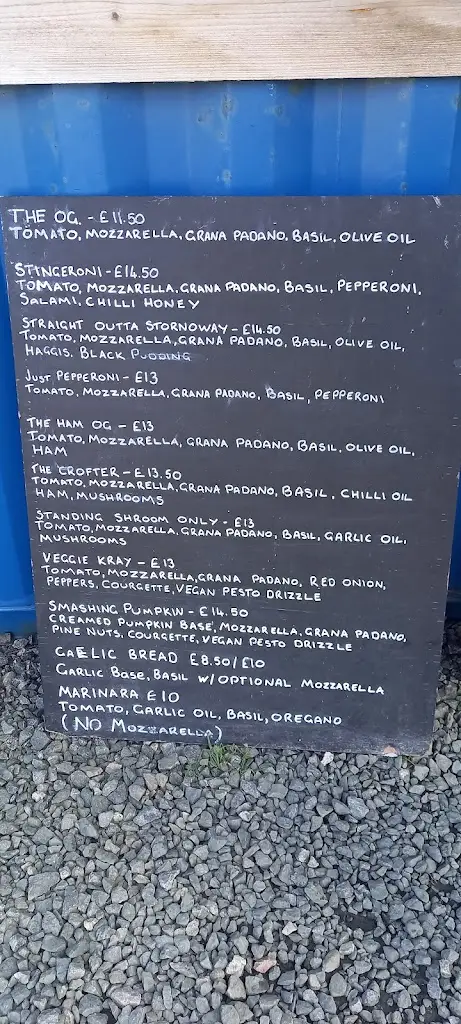 THE OG. - £11.50
TOMATO, MOZZARELLA, GRANA PADANO, BASIL, OLIVE OIL
STINGERONI - £14.50
TOMATO, MOZZARELLA, GRANA PADANO, BASIL, PEPPERONI,
SALAMI, CHILLI HONEY
STRAIGHT OUTTA STORNOWAY - £14.50
TOMATO, MOZZARELLA, GRANA PADANO, BASIL, OLIVE OIL,
HAGGIS. BLACK PUDDING
JUST PEPPERONI - £13
TOMATO, MOZZARELLA, GRANA PADANO, BASIL, PEPPERONI
THE HAM OG - £13
TOMATO, MOZZARELLA, GRANA PADANO, BASIL, OLIVE OIL,
HAM
THE CROFTER - £13.50
TOMATO, MOZZARELLA, GRANA PADANO, BASIL, CHILLI OIL
HAM, MUSHROOMS
STANDING SHROOM ONLY - £13
TOMATO, MOZZARELLA, GRANA PADANO, BASIL, GARLIC OIL,
MUSHROOMS
VEGGIE KRAY - £13
TOMATO, MOZZARELLA, GRANA PADANO, RED ONION,
PEPPERS, COURGETTE, VEGAN PESTO DRIZZLE
SMASHING PUMPKIN - £14.50
CREAMED PUMPKIN BASE, MOZZARELLA, GRANA PADANO,
PINE NUTS, COURGETTE, VEGAN PESTO DRIZZLE
GAELIC BREAD £8.50/£10
GARLIC BASE, BASIL W/OPTIONAL MOZZARELLA
MARINARA £10
TOMATO, GARLIC OIL, BASIL, OREGANO
(NO MOZZARELLA)